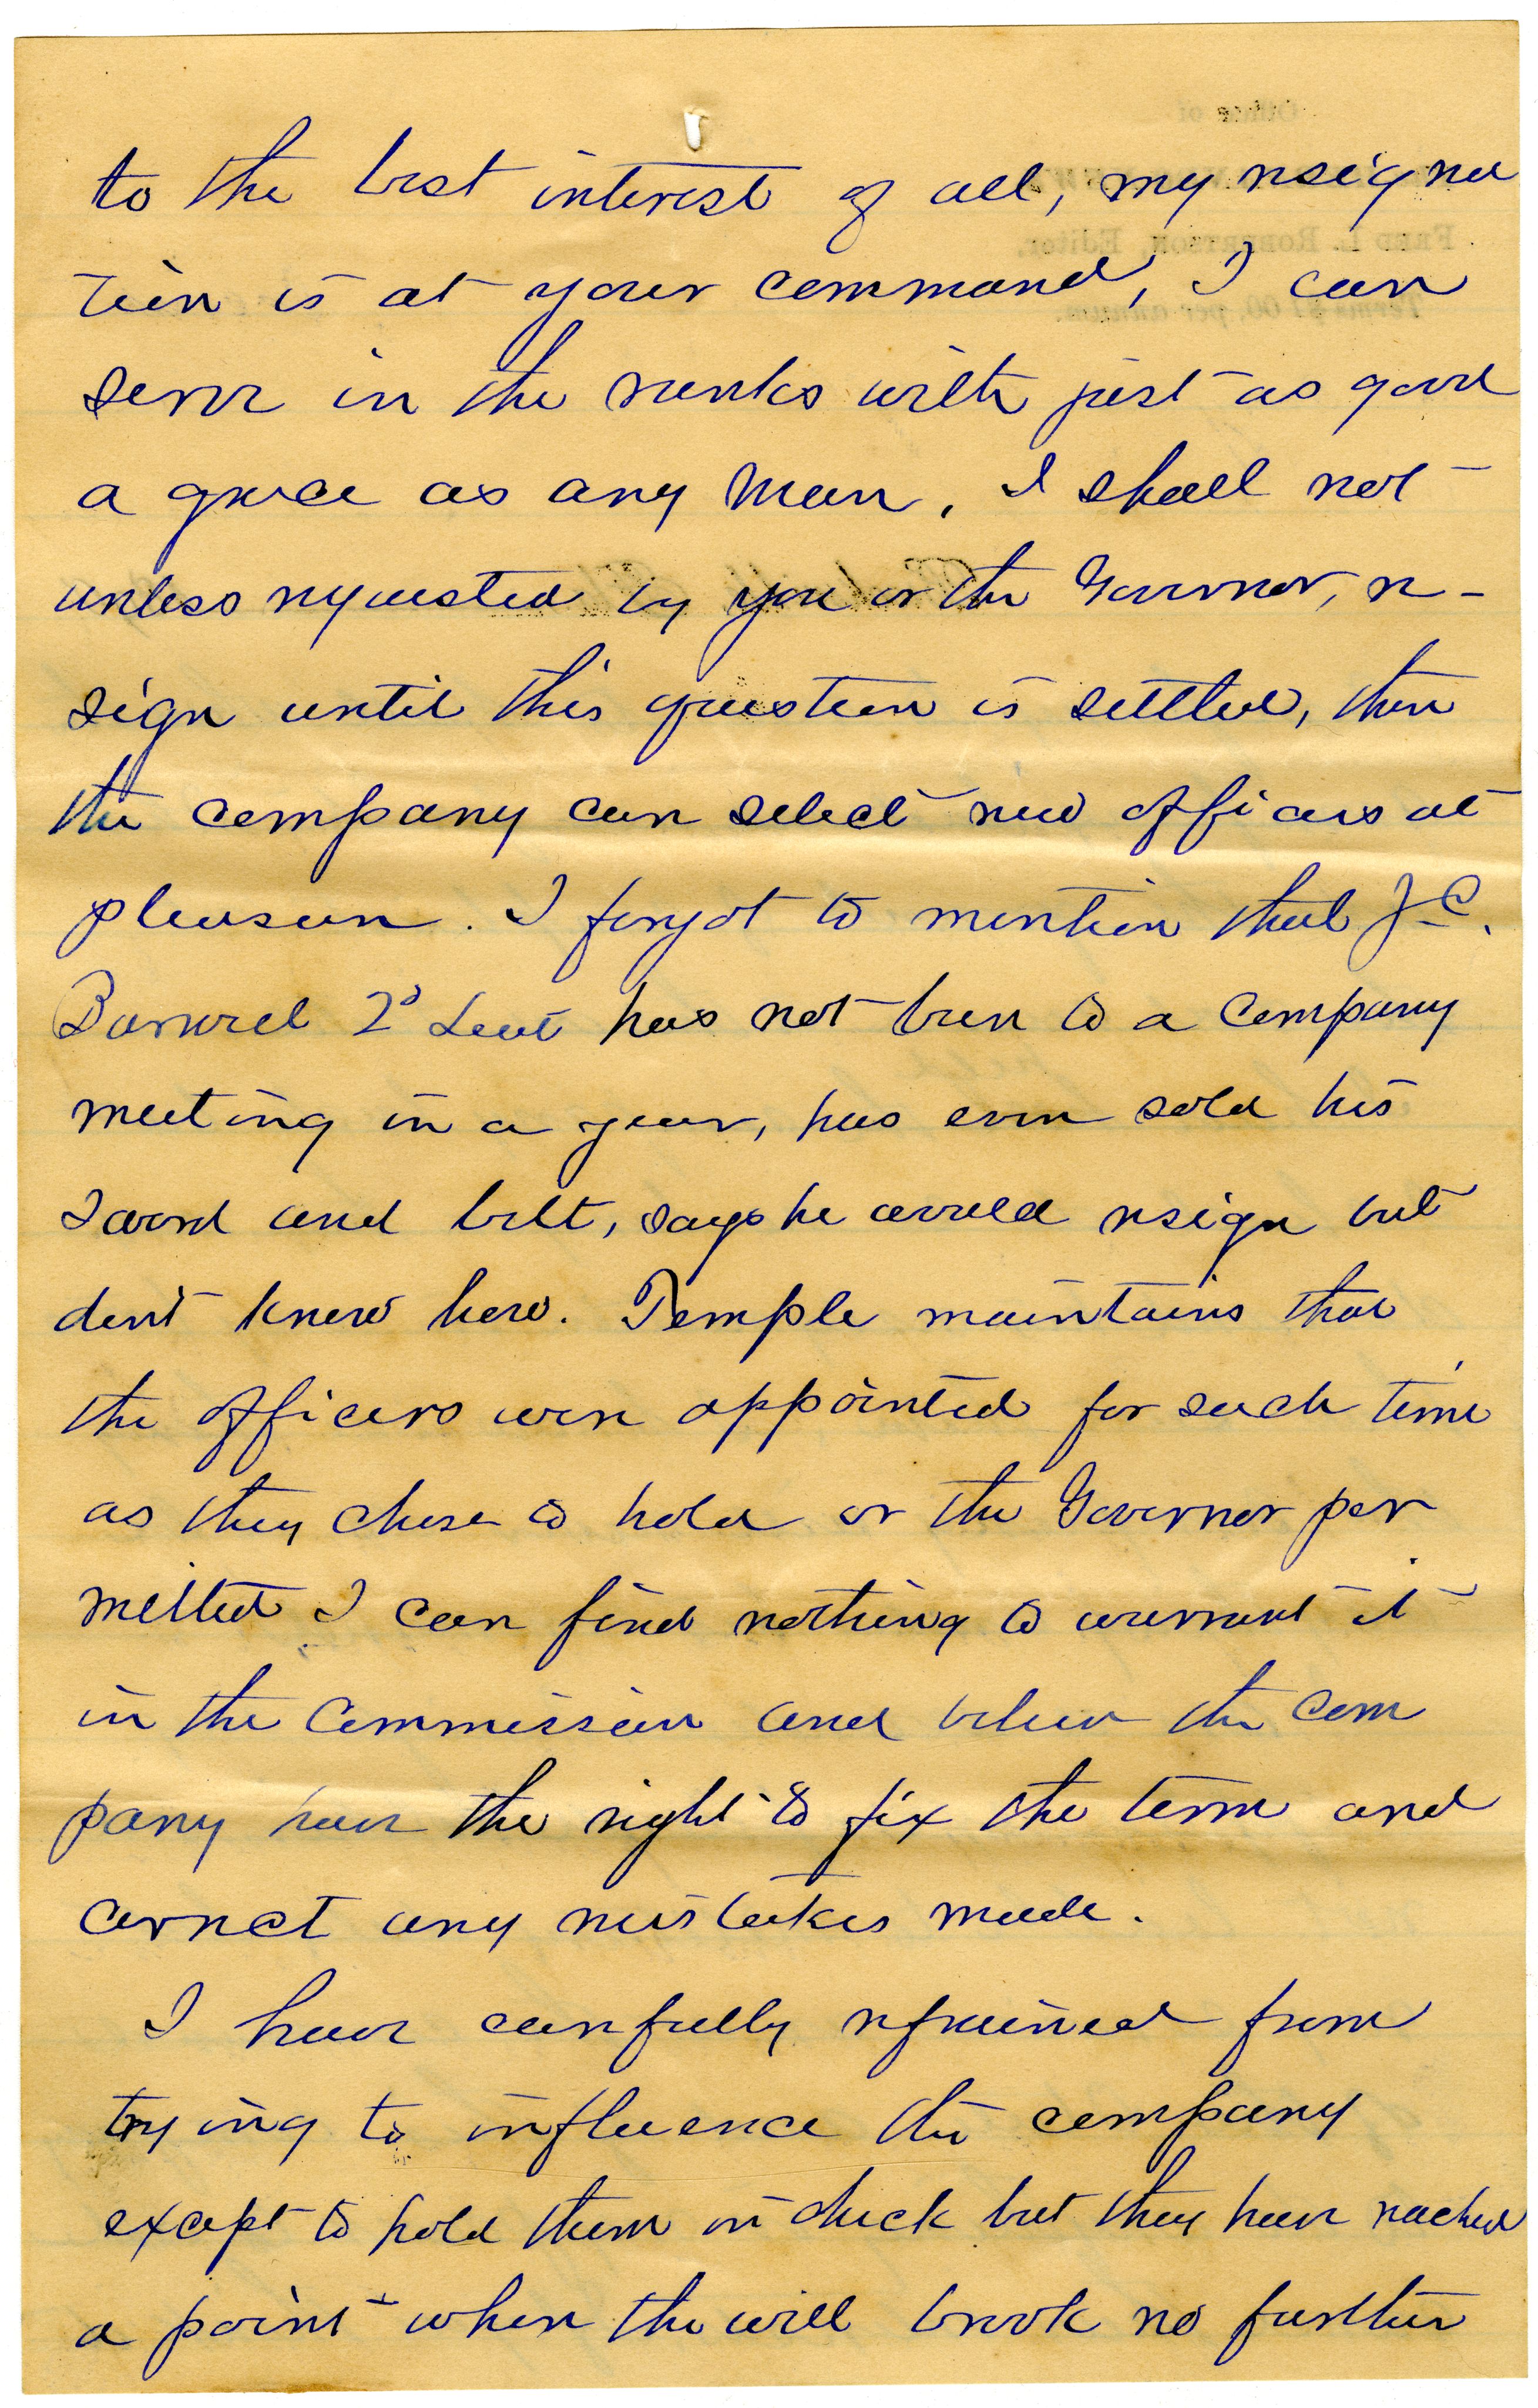 to the best interest of all, my resigna
tion is at your command, I can
serve in the ranks with just as good
a grace as any man, I shall not
unless requested by you or the Governor, re-
sign until this question is settled, then
the company can select new officers at
pleasure. I forgot to mention that J. C.
2d Leut has not been to a company
meeting in a year, has even sold his
Sword and belt, says he would resign but
dont know how. Temple maintains that
the officers were appointed for such time
as they chose to hold or the Governor per
mitted I can find nothing to warrant it
in the Commission and believe the com
pany have the right to fix the term and
correct any mistakes made.
I have carefully refrained from
trying to influence the company
except to hold them in check but they have reached
a point when the will brook no further